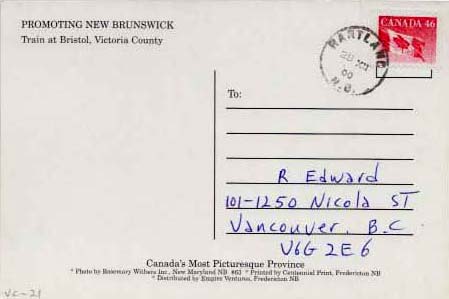 PROMOTING NEW BRUNSWICK
Train at Bristol, Victoria County
CANADA 46
HARTLAND
28 XII
00
N.B.
To:
R Edward
101-1250 Nicola ST
Vancouver, B.C
V6G 2E6
Canada's Most Picturesque Province
* Photo by Rosemary Withers Inc., New Maryland NB #63 * Printed by Centennial Print, Fredericton NB
* Distributed by Empire Ventures, Fredericton NB
VC-21